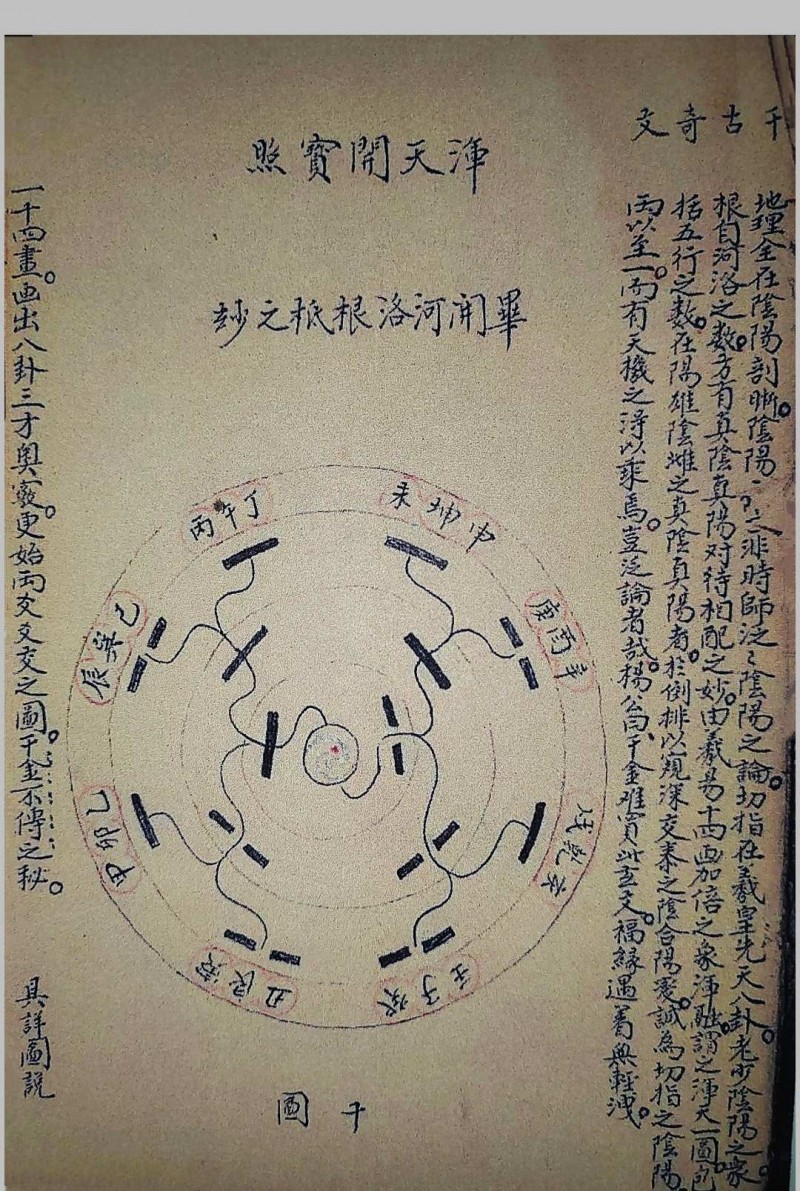 千古奇文
地理全在陰陽剖晰。陰陽之非時師泛泛陰陽之論。切指在羲皇先天八卦。老少陰陽之象。
根自河洛之数。方有真陰真陽对待相配之妙。由羲易十四画加倍之象。渾融謂之渾天一圖。包
括五行之数。在陽雄陰雌之真陰真陽者。於倒排以窺深交泰之陰合陽竅。誠為切指之陰陽。
両以至一。而有天機之得以乘焉。豈泛論者哉。楊公曰。千金难買此玄文。福緣遇着無輕洩。
渾天開寳照
畢開河洛根柢之玅
丙午丁
未坤申
庚酉辛
戌乾亥
壬子癸
丑艮寅
甲卯乙
辰巽巳
圖
一十四畫。画出八卦三才奥竅。更始両爻爻交之圖。千金不傳之秘。
具詳圖説